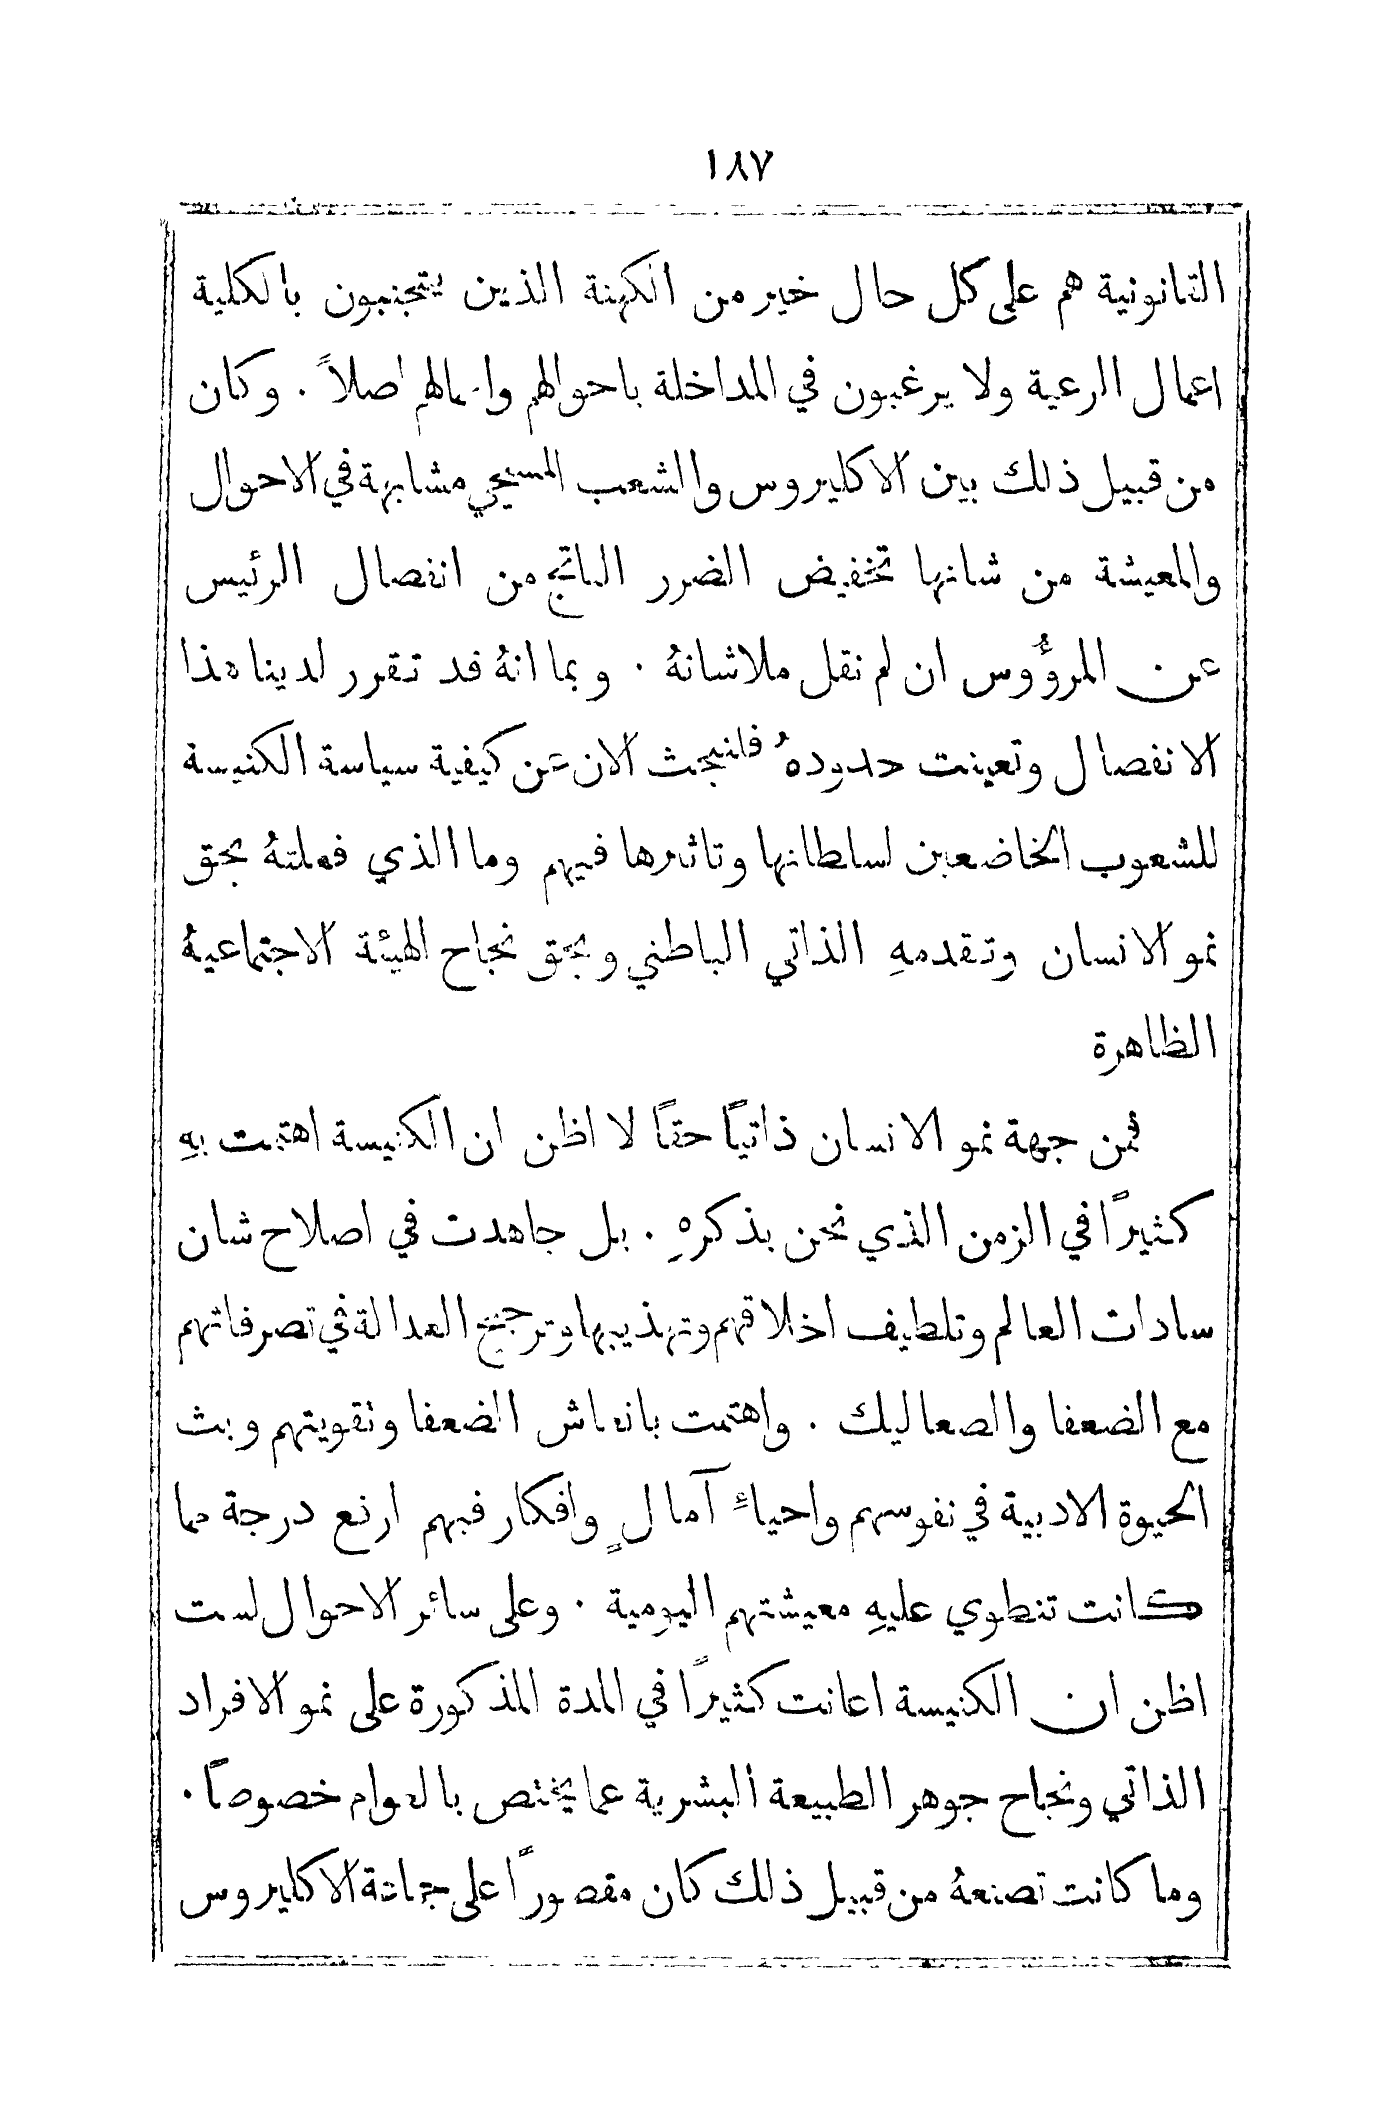 ١٨٧
القانونية هم على كل حال خير من الكهنة الذين يتجنبون بالكلية
اعمال الرعية ولا يرغبون في المداخلة باحوالهم واعمالهم اصلاً . وكان
من قبيل ذلك بين الاكليروس والشعب المسيحي مشابهة في الاحوال
والمعيشة من شانها تخفيض الضرر الناتج من انفصال الرئيس
عن المرؤُوس ان لم نقل ملاشاتهُ . وبما انهُ قد تقرر لدينا هذا
الانفصال وتعينت حدودهُ فلنبحث الان عن كيفية سياسة الكنيسة
للشعوب الخاضعين لسلطانها وتاثيرها فيهم وما الذي فعلتهُ بحق
نمو الانسان وتقدمهِ الذاتي الباطني وبحق نجاح الهيئة الاجتماعية
الظاهرة
فمن جهة نمو الانسان ذاتيًا حقًا لا اظن ان الكنيسة اهتمت بهِ
كثيرًا في الزمن الذي نحن بذكرهِ . بل جاهدت في اصلاح شان
سادات العالم وتلطيف اخلاقهم وتهذيبها وترجيح العدالة في تصرفاتهم
مع الضعفا والصعاليك . واهتمت بانعاش الضعفا وتقويتهم وبث
الحيوة الادبية في نفوسهم واحياءِ آمالٍ وافكار فيهم ارفع درجة مما
كانت تنطوي عليهِ معيشتهم اليومية . وعلى سائر الاحوال لست
اظن ان الكنيسة اعانت كثيرًا في المدة المذكورة على نمو الافراد
الذاتي ونجاح جوهر الطبيعة البشرية عما يختص بالعوام خصوصًا .
وما كانت تصنعهُ من قبيل ذلك كان مقصورًا على جماعة الاكليروس